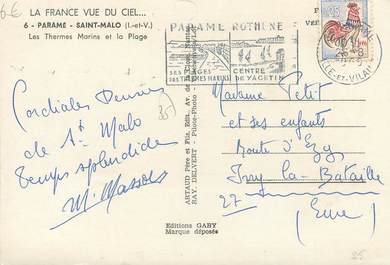 6-E
LA FRANCE VUE DU CIEL...
6 - PARAME - SAINT-MALO (I.-et-V.)
Les Thermes Marins et la Plage
PARAME ROTHENEUF
SES PLAGES
SES THERMES MARINS
CENTRE
DE YACHTING
ILLE-ET-VILAINE
Cordiales Pensées
de St Malo
Temps splendide
M. Massot
35
ARTAUD Père et Fils, Edit.
RAY DELVERT - Pilote-Photo
Editions GABY
Marque déposée
Madame Petit
et ses enfants
Route d'Ezy
Ivry-la-Bataille
27 (Eure)
25